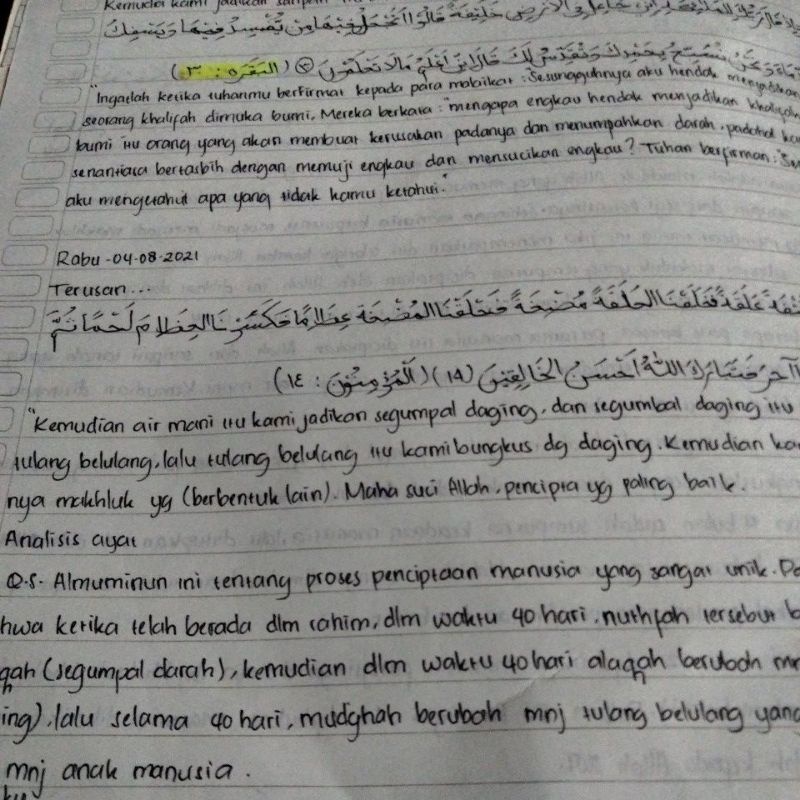 Kemudian kami jadikan saripati
جَاعِلٌ فِى الْأَرْضِ خَلِيفَةً قَالُوْا أَتَجْعَلُ فِيْهَا مَنْ يُفْسِدُ فِيْهَا وَيَسْفِكُ
وَنَحْنُ نُسَبِّحُ بِحَمْدِكَ وَنُقَدِّسُ لَكَ قَالَ إِنِّى أَعْلَمُ مَالَا تَعْلَمُوْنَ (البقره : ٣٠)
"Ingatlah ketika tuhanmu berfirmat kepada para malaikat : Sesungguhnya aku hendak menjadikan
seorang khalifah dimuka bumi, Mereka berkata : "mengapa engkau hendak menjadikan khalifah
bumi itu orang yang akan membuat kerusakan padanya dan menumpahkan darah, padahal ka
senantiasa bertasbih dengan memuji engkau dan mensucikan engkau? Tuhan berfirman : "Se
aku mengetahui apa yang tidak kamu ketahui."
Rabu -04-08-2021
Terusan...
عَلَقَةً فَخَلَقْنَا الْعَلَقَةً مُضْغَةً فَخَلَقْنَا الْمُضْغَةَ عِظَامًا فَكَسَوْنَا الْعِظَامَ لَحْمًا ثُمَّ
آخَرَ فَتَبَارَكَ اللّٰهُ أَحْسَنُ الْخَالِقِيْنَ (١٨) (الْمُؤْمِنُوْنَ : ١٤)
"Kemudian air mani itu kami jadikan segumpal daging, dan segumbal daging itu
tulang belulang, lalu tulang belulang itu kami bungkus dg daging. Kemudian ka
nya makhluk yg (berbentuk lain). Maha suci Allah, pencipta yg paling baik.
Analisis ayat
Q.S. Almuminun ini tentang proses penciptaan manusia yang sangat unik. Da
hwa ketika telah berada dlm rahim, dlm waktu 40 hari, nuthfah tersebut b
qah (segumpal darah), kemudian dlm waktu 40 hari alaqah berubah mn
ing), lalu selama 40 hari, mudghah berubah mnj tulang belulang yang
mnj anak manusia.